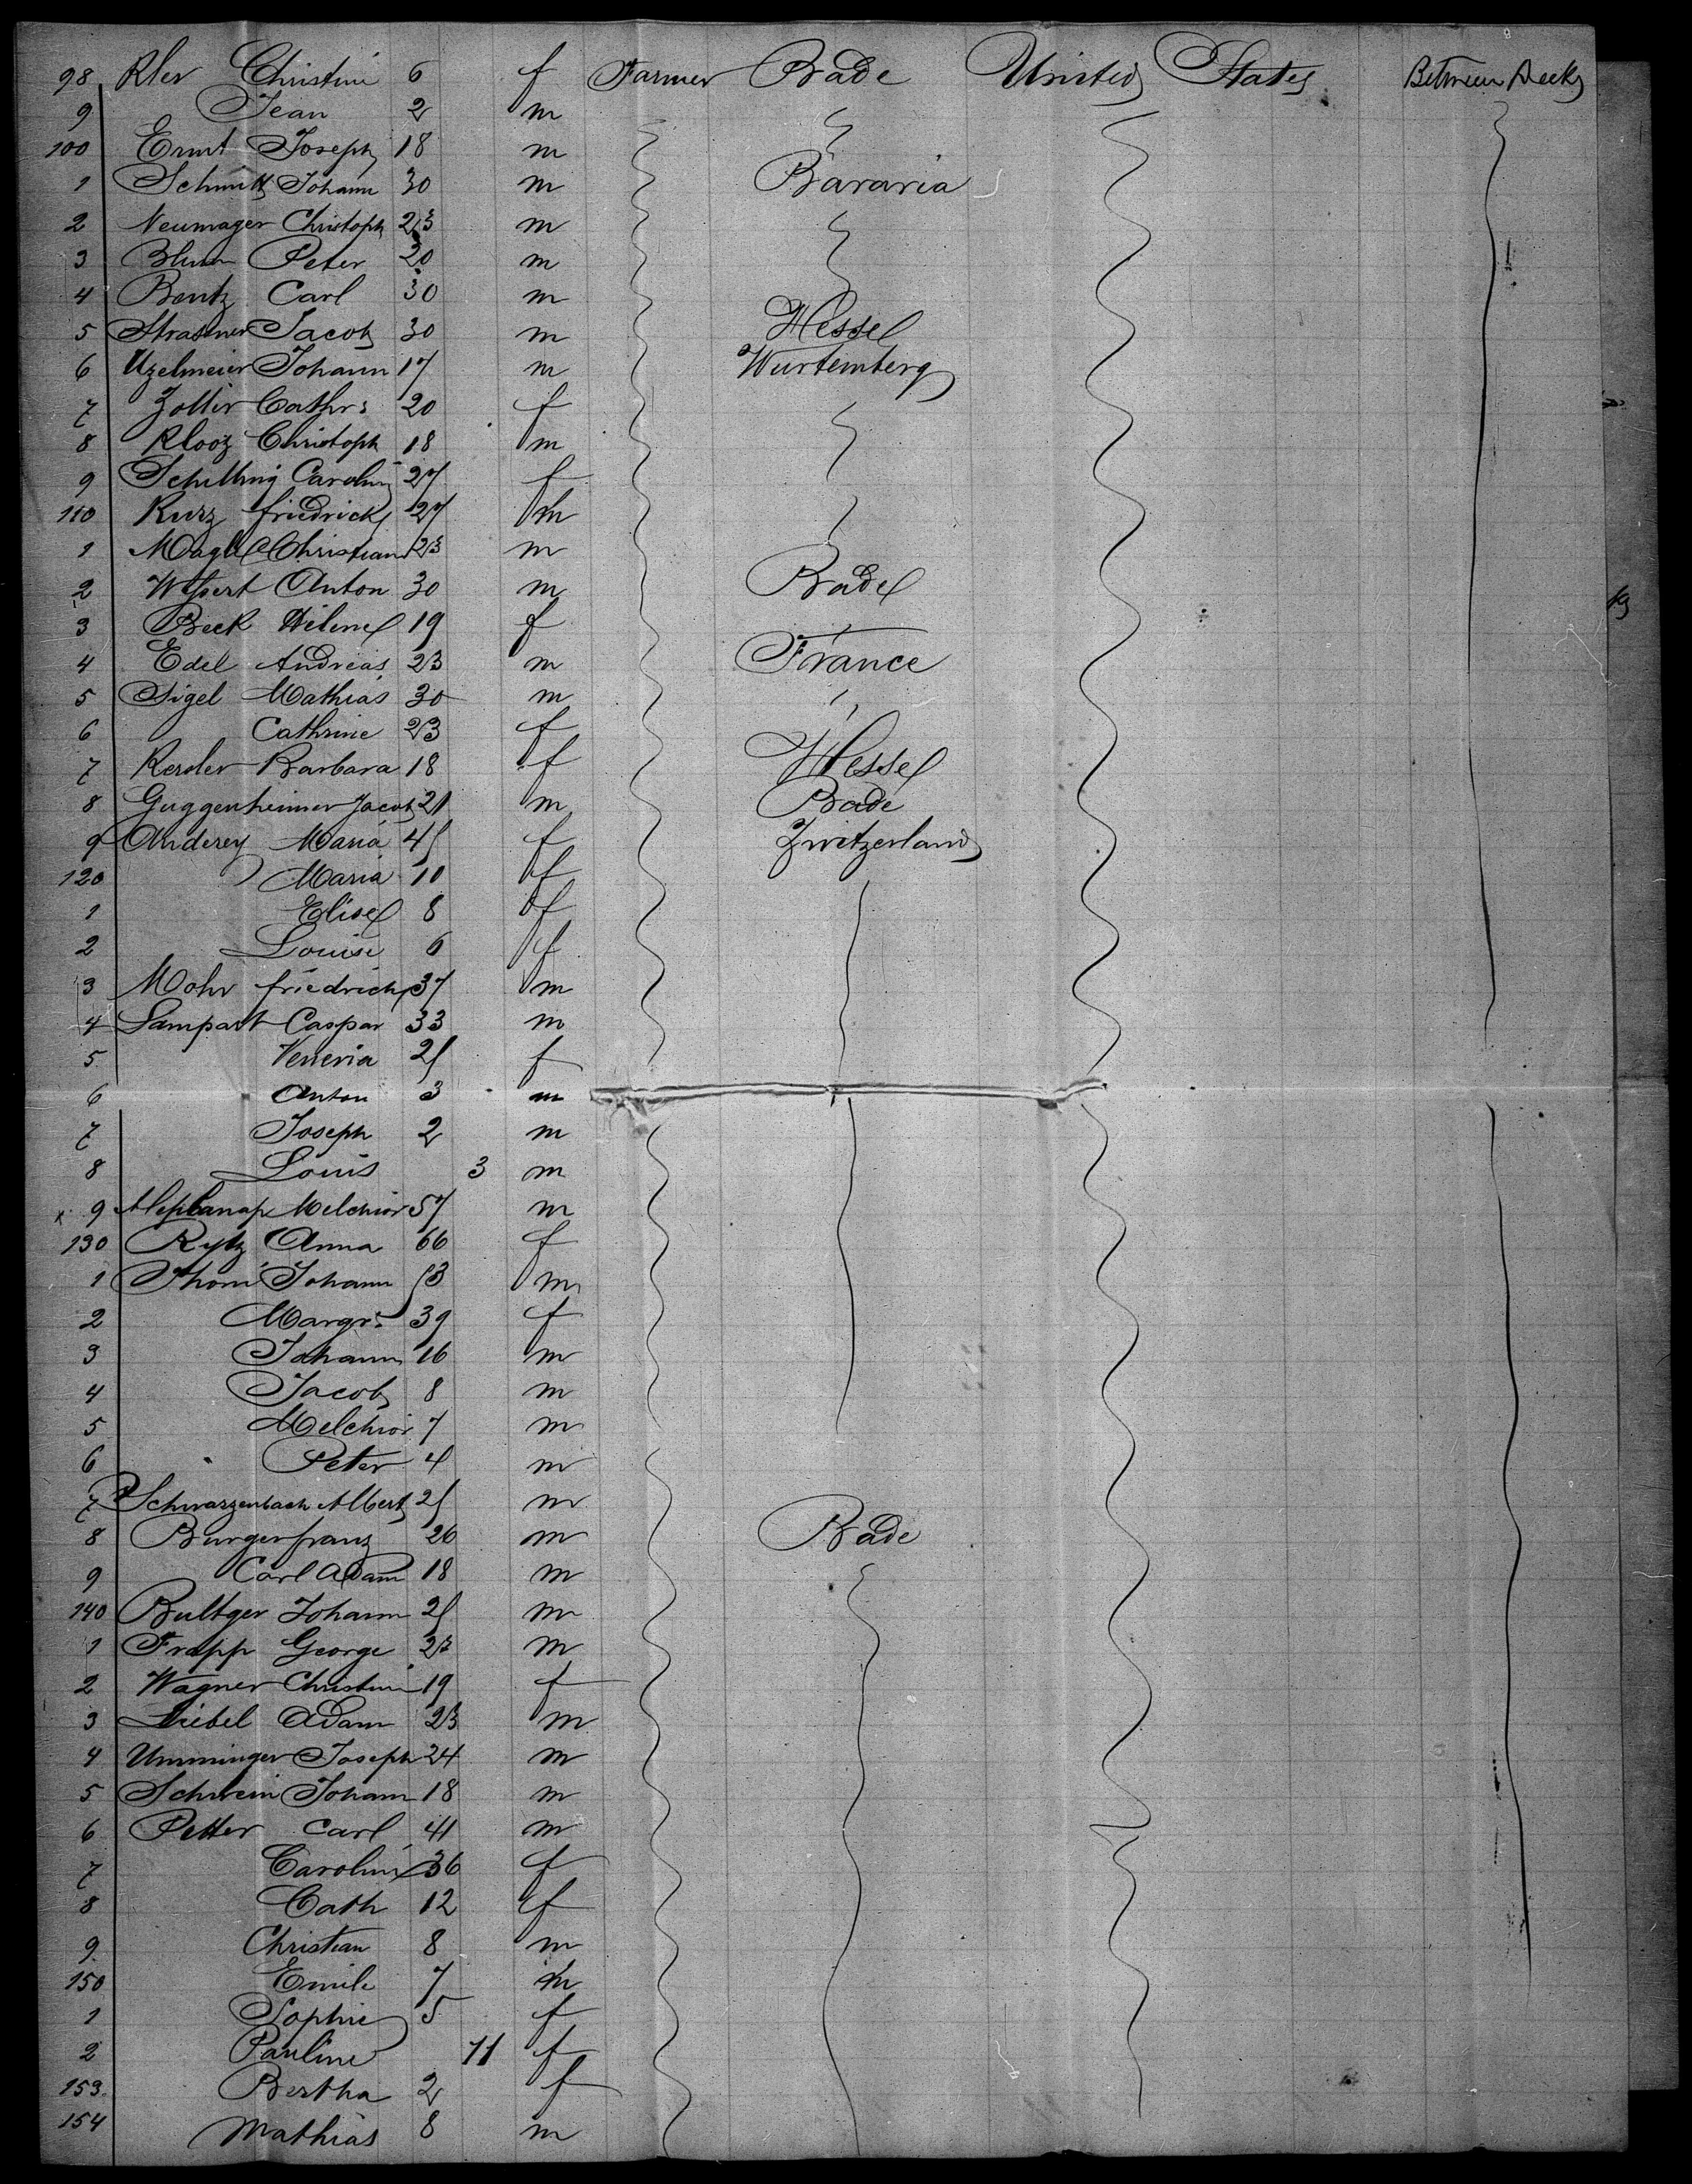 98 Kler Christine 6 f Farmer Bade United States Between Decks
9 Jean 2 m
100 Ernst Joseph 18 m
1 Schmitt Johann 30 m Bavaria
2 Neumager Christoph 23 m
3 Blum Peter 20 m
4 Bentz Carl 30 m
5 Strassner Jacob 30 m Hesse
6 Uzelmeier Johann 17 m Wurtemberg
7 Zoller Cathr: 20 f
8 Klooz Christoph 18 m
9 Schilling Caroline 27 f
110 Kurz friedrich 27 m
1 Christian 23 m
2 Anton 30 m Bade
3 Beck Helene 19 f
4 Edel Andreas 23 m France
5 Sigel Mathias 30 m
6 Cathrine 23 f
7 Kesder Barbara 18 f Hesse
8 Guggenheimer Jacob 21 m Bade
9 Anderey Maria 45 f Zwitzerland
120 Maria 10 f
1 Elise 8 f
2 Louise 6 f
3 Mohr friedrich 37 m
4 Lampart Caspar 33 m
5 Veneria 25 f
6 Anton 3 m
7 Joseph 2 m
8 Louis 3 m
x 9 Melchior 57 m
130 Rytz Anna 66 f
1 Thoni Johann 53 m
2 Margr: 39 f
3 Johann 16 m
4 Jacob 8 m
5 Melchior 7 m
6 Peter 4 m
7 Schwarzenbach Albert 25 m
8 Burger franz 26 m Bade
9 Carl Adam 18 m
140 Bultger Johann 25 m
1 Frapp George 23 m
2 Wagner Christine 19 f
3 Liebel Adam 23 m
4 Umminger Joseph 24 m
5 Schwein Johann 18 m
6 Petter Carl 41 m
7 Caroline 36 f
8 Cath 12 f
9 Christian 8 m
150 Emile 7 m
1 Sophie 5 f
2 Pauline 11 f
153. Bertha 2 f
154 Mathias 8 m